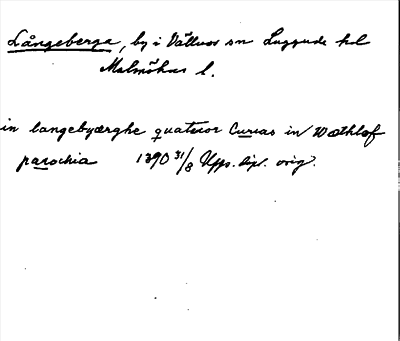 Långeberga, by i Välluvs sn Luggude hd
Malmöhus l.
in langebyærghe quatuor Curias in Wæthløf
parochia 1390 31/8 Upps. dipl. orig.